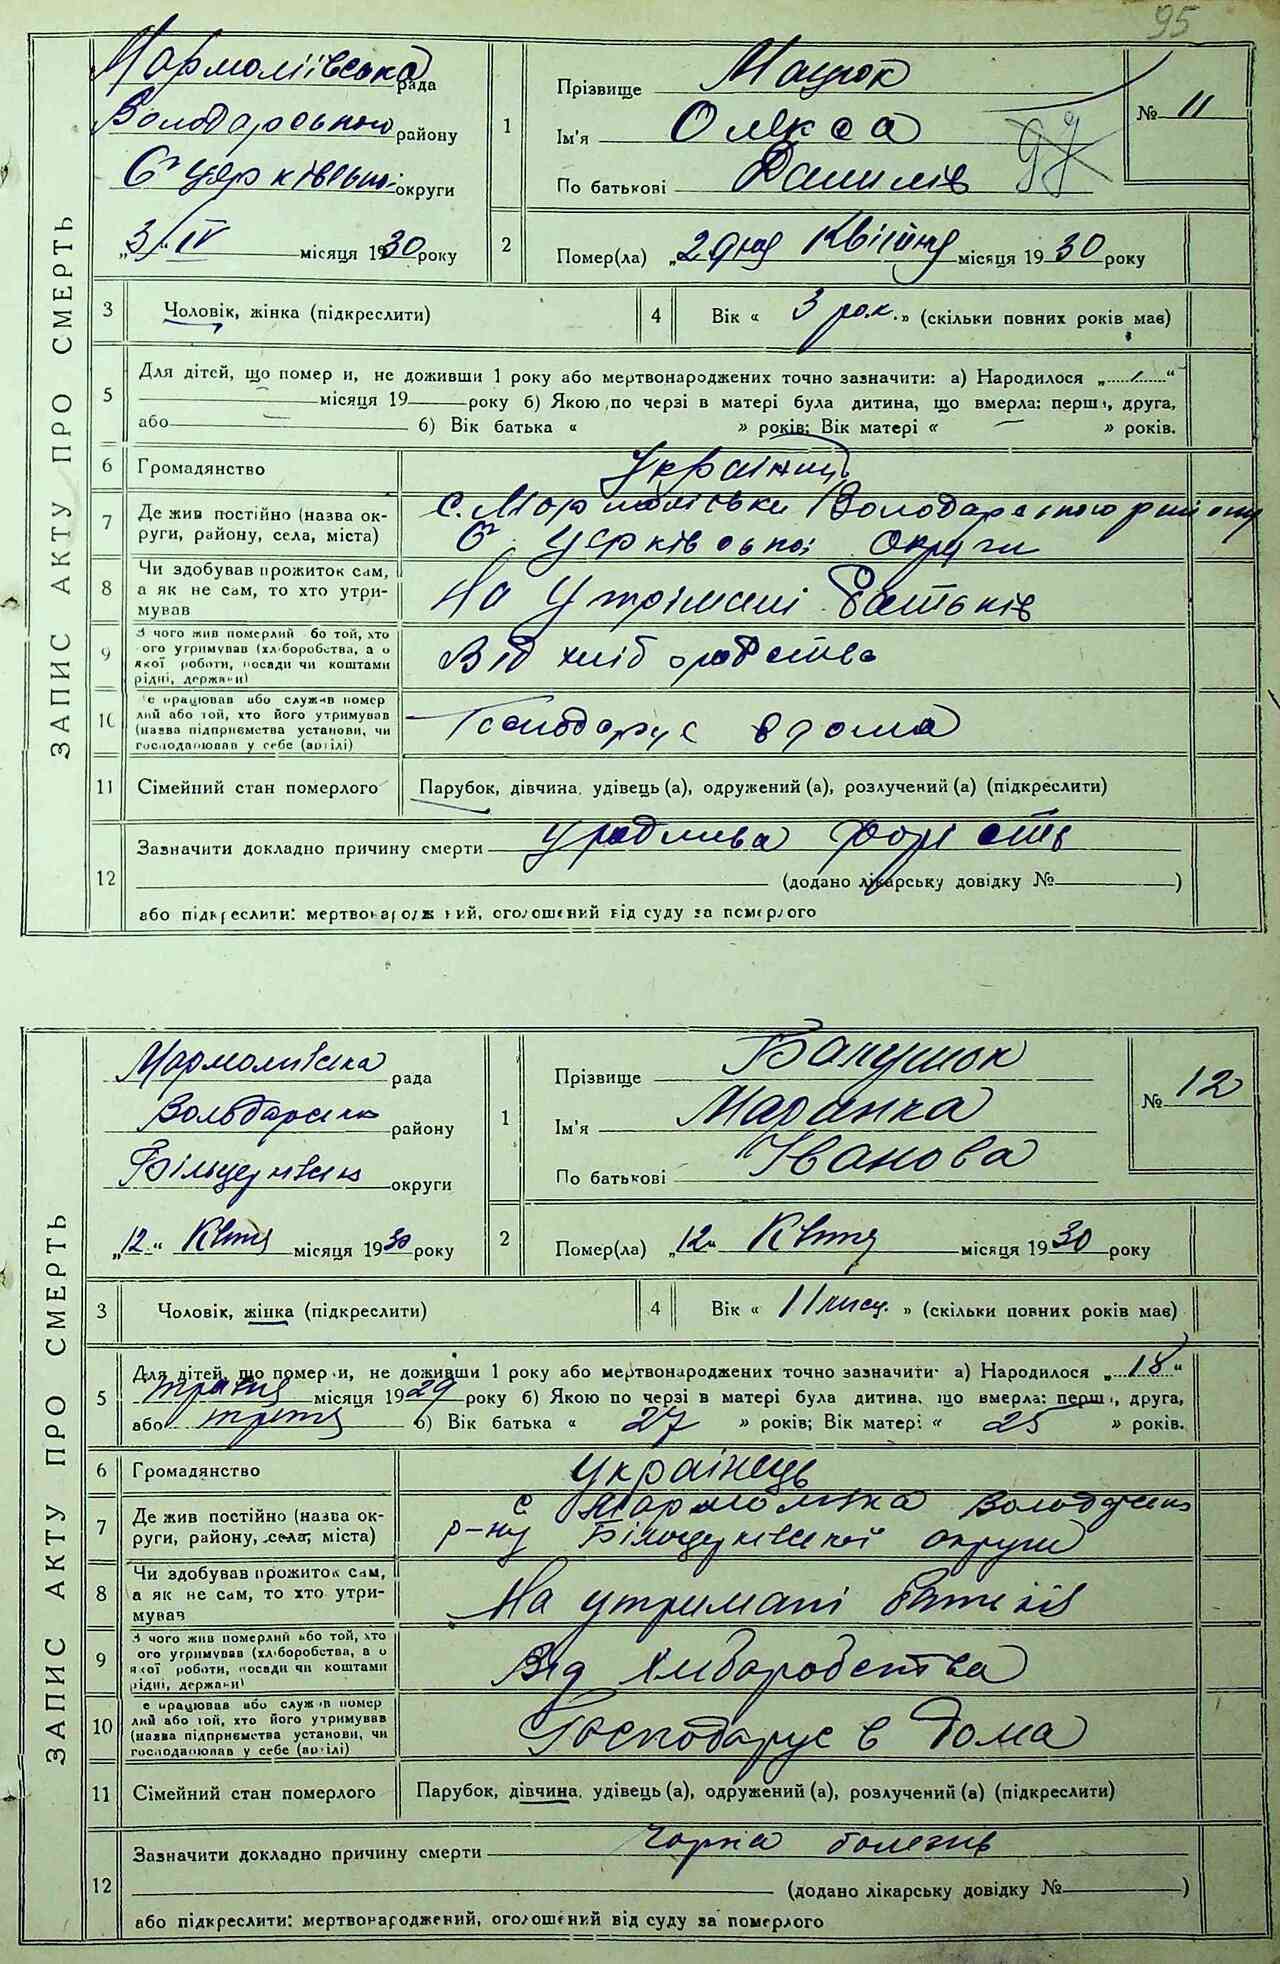 95
ЗАПИС АКТУ ПРО СМЕРТЬ
Мармоліївська рада
Володарського району
Б Церківсько округи
„3/IV місяця 1930 року
1
Прізвище Мацюк
Ім'я Олекса
По батькові Данилів
№ 11
97
2
Помер(ла) „2 дня Квітня місяця 1930 року
3
Чоловік, жінка (підкреслити)
4
Вік « 3 рок. » (скільки повних років має)
5
Для дітей, що помер и, не доживши 1 року або мертвонароджених точно зазначити: а) Народилося „ “
місяця 19 року б) Якою по черзі в матері була дитина, що вмерла: перш, друга,
або б) Вік батька « » років; Вік матері « » років.
6
Громадянство
Українець
7
Де жив постійно (назва ок-
руги, району, села, міста)
с. Мармоліївки Володарського району
Б. Церківської округи
8
Чи здобував прожиток сам,
а як не сам, то хто утри-
мував
На Утрімані Батьків
9
З чого жив померлий або той, хто
ого утримував (хліборобства, а о
якої роботи, посади чи коштами
рідні, держави)
Від хліборобства
10
е працював або служив помер
лий або той, хто його утримував
(назва підприємства установи, чи
господарював у себе (артілі)
Господарує вдома
11
Сімейний стан померлого
Парубок, дівчина, удівець (а), одружений (а), розлучений (а) (підкреслити)
12
Зазначити докладно причину смерти уродлива
(додано лікарську довідку № )
або підкреслити: мертвонароджений, оголошений від суду за померлого
ЗАПИС АКТУ ПРО СМЕРТЬ
Мармоліївська рада
Володарсько району
Білоцерківсько округи
„12“ Квітня місяця 1930 року
1
Прізвище
Ім'я Маранка
По батькові Іванова
№ 12
2
Помер(ла) „12“ Квітня місяця 1930 року
3
Чоловік, жінка (підкреслити)
4
Вік « 11 мисц. » (скільки повних років має)
5
Для дітей, що помер и, не доживши 1 року або мертвонароджених точно зазначити: а) Народилося „18“
травня місяця 1929 року б) Якою по черзі в матері була дитина, що вмерла: перш, друга,
або третя б) Вік батька « 27 » років; Вік матері « 25 » років.
6
Громадянство
Українець
7
Де жив постійно (назва ок-
руги, району, села, міста)
с Мармоліївка Володарсько
р-ну Білоцерківської округи
8
Чи здобував прожиток сам,
а як не сам, то хто утри-
мував
На утримані батьків
9
З чого жив померлий або той, хто
ого утримував (хліборобства, а о
якої роботи, посади чи коштами
рідні, держави)
Від Хліборобства
10
е працював або служив помер
лий або той, хто його утримував
(назва підприємства установи, чи
господарював у себе (артілі)
Господарує в дома
11
Сімейний стан померлого
Парубок, дівчина, удівець (а), одружений (а), розлучений (а) (підкреслити)
12
Зазначити докладно причину смерти Чорна болезнь
(додано лікарську довідку № )
або підкреслити: мертвонароджений, оголошений від суду за померлого